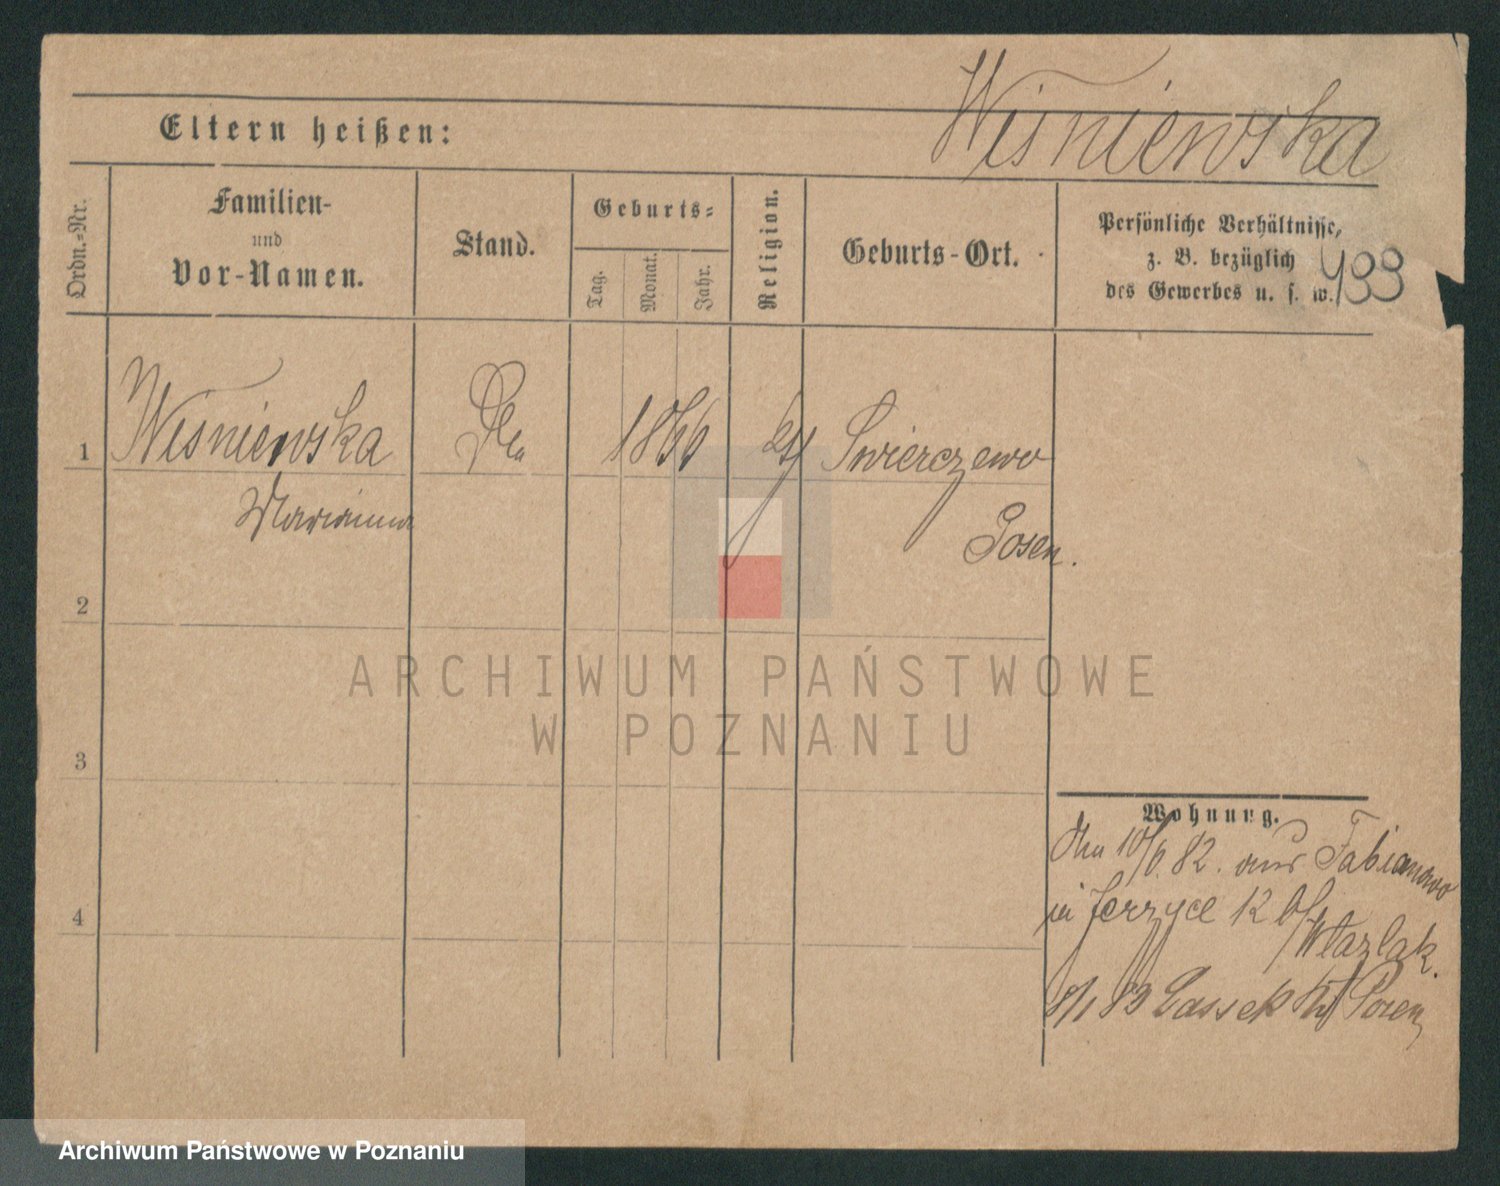 Wiśniewska
Eltern heißen:
Ordn.=Nr.
Familien-
und
Vor-Namen.
Stand.
Geburts=
Tag.
Monat.
Jahr.
Religion.
Geburts-Ort.
Persönliche Verhältnisse,
z. B. bezüglich
des Gewerbes u. s. w.
499
1
Wiśniewska
1866
Swierczewo
Marianna
Posen.
2
ARCHIWUM PAŃSTWOWE
W POZNANIU
3
Wohnung.
10/6. 82. aus Fabianowo
in Jerzyce 12 b/
Wlazlak.
4
8/1 83 Lassek Posen
Archiwum Państwowe w Poznaniu